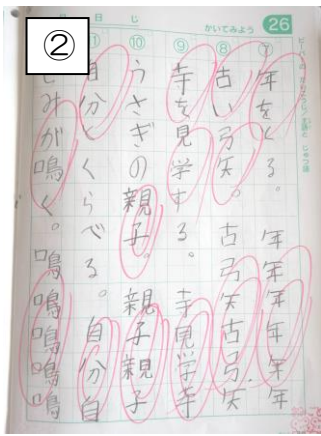 かいてみよう 26
⑦ 年をとる。 年年年年年
⑧ 古い弓矢。 古弓矢古弓矢
⑨ 寺を見学する。 寺見学寺
⑩ うさぎの親子。 親子親子
自分とくらべる。 自分自
みが鳴く。 鳴鳴鳴鳴鳴
②
日
じ